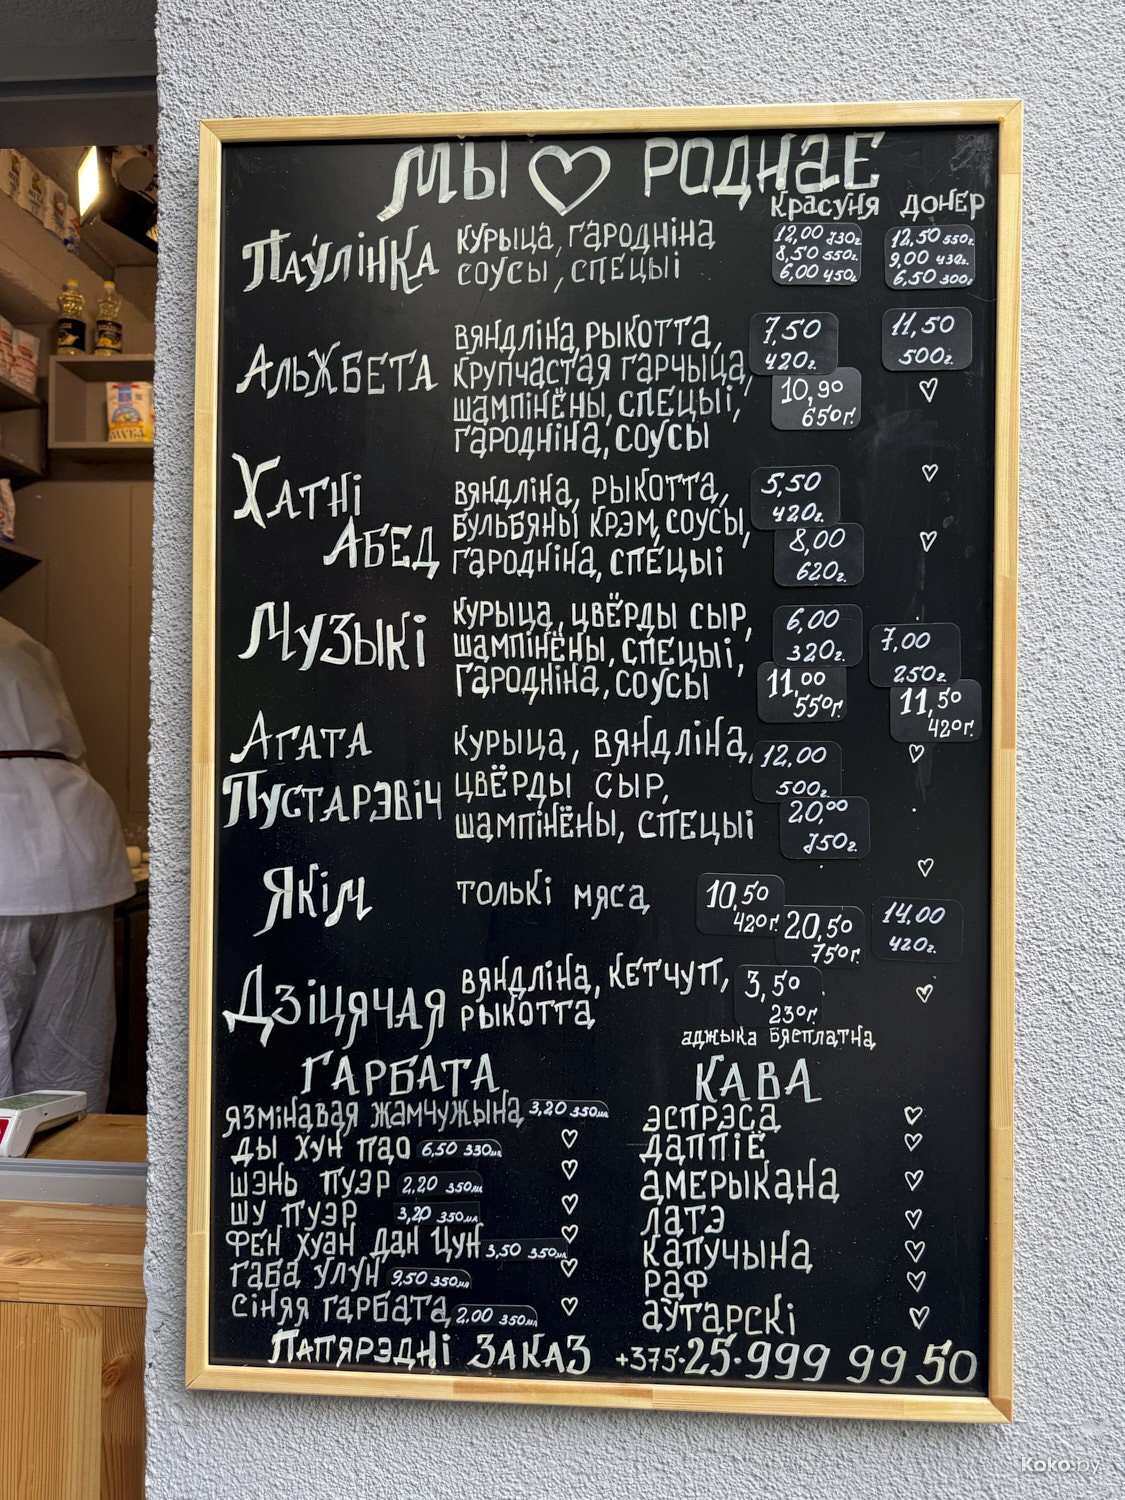 Мы ♡ роднае
Красуня донер
Паўлінка курыца, гародніна
соусы, спецыі
12,00 730г.
8,50 550г.
6,00 450г.
12,50 550г.
9,00 430г.
6,50 300г.
Альжбета
вяндліна, рыкотта,
крупчастая гарчыца,
шампінёны, спецыі,
гародніна, соусы
7,50
420г.
10,90
650г.
11,50
500г.
♡
Хатні
Абед
вяндліна, рыкотта,
бульбяны крэм, соусы,
гародніна, спецыі
5,50
420г.
8,00
620г.
♡
♡
Музыкі
курыца, цвёрды сыр,
шампінёны, спецыі,
гародніна, соусы
6,00
320г.
11,00
550г.
7,00
250г.
11,50
420г.
Агата
Пустарэвіч
курыца, вяндліна,
цвёрды сыр,
шампінёны, спецыі
12,00
500г.
20,00
750г.
♡
♡
Якім толькі мяса
10,50
420г.
20,50
750г.
14,00
420г.
Дзіцячая
вяндліна, кетчуп,
рыкотта
3,50
230г.
♡
аджыка бясплатна
Гарбата
язмінавая жамчужына 3,20 350мл
♡
ды хун пао 6,50 330мл
♡
шэнь пуэр 2,20 350мл
♡
шу пуэр 3,20 350мл
♡
фен хуан дан цун 3,50 350мл
♡
габа улун 9,50 350мл
♡
сіняя гарбата 2,00 350мл
Кава
эспрэса ♡
даппіё ♡
амерыкана ♡
латэ ♡
капучына ♡
раф ♡
аўтарскі ♡
Папярэдні заказ +375·25·999 99 50
мука
Koko.by